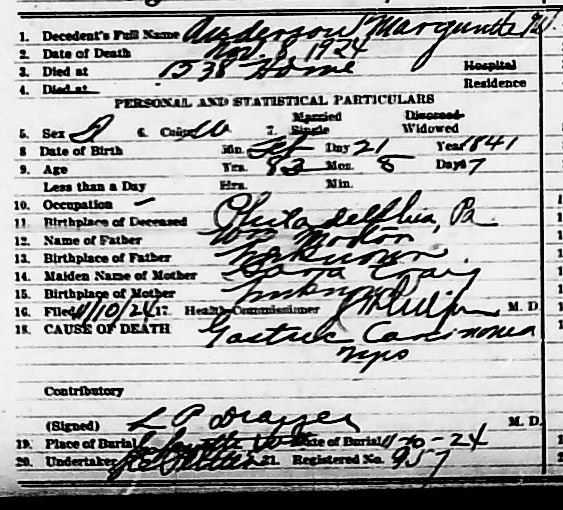 1. Decedent's Full Name Anderson Marguritte M.
2. Date of Death Nov. 8, 1924
3. Died at 1538 Home Hospital
4. Died at Residence
PERSONAL AND STATISTICAL PARTICULARS
Married Divorced
5. Sex 6. Color W 7. Single Widowed
8 Date of Birth Mo. Day 21 Year 1841
9. Age Yrs. 83 Mos. 8 Days 7
Less than a Day Hrs. Min.
10. Occupation —
11 Birthplace of Deceased Philadelphia, Pa
12. Name of Father Wm Morton
13. Birthplace of Father Unknown
14. Maiden Name of Mother Sarra Craig
15. Birthplace of Mother Unknown
16. Filed 11/10/24 17. Health Commissioner M. D.
18. CAUSE OF DEATH Gastric Carcinoma
Contributory
(Signed) L P M. D.
19. Place of Burial Date of Burial 11-10-24
20. Undertaker 21. Registered No. 957